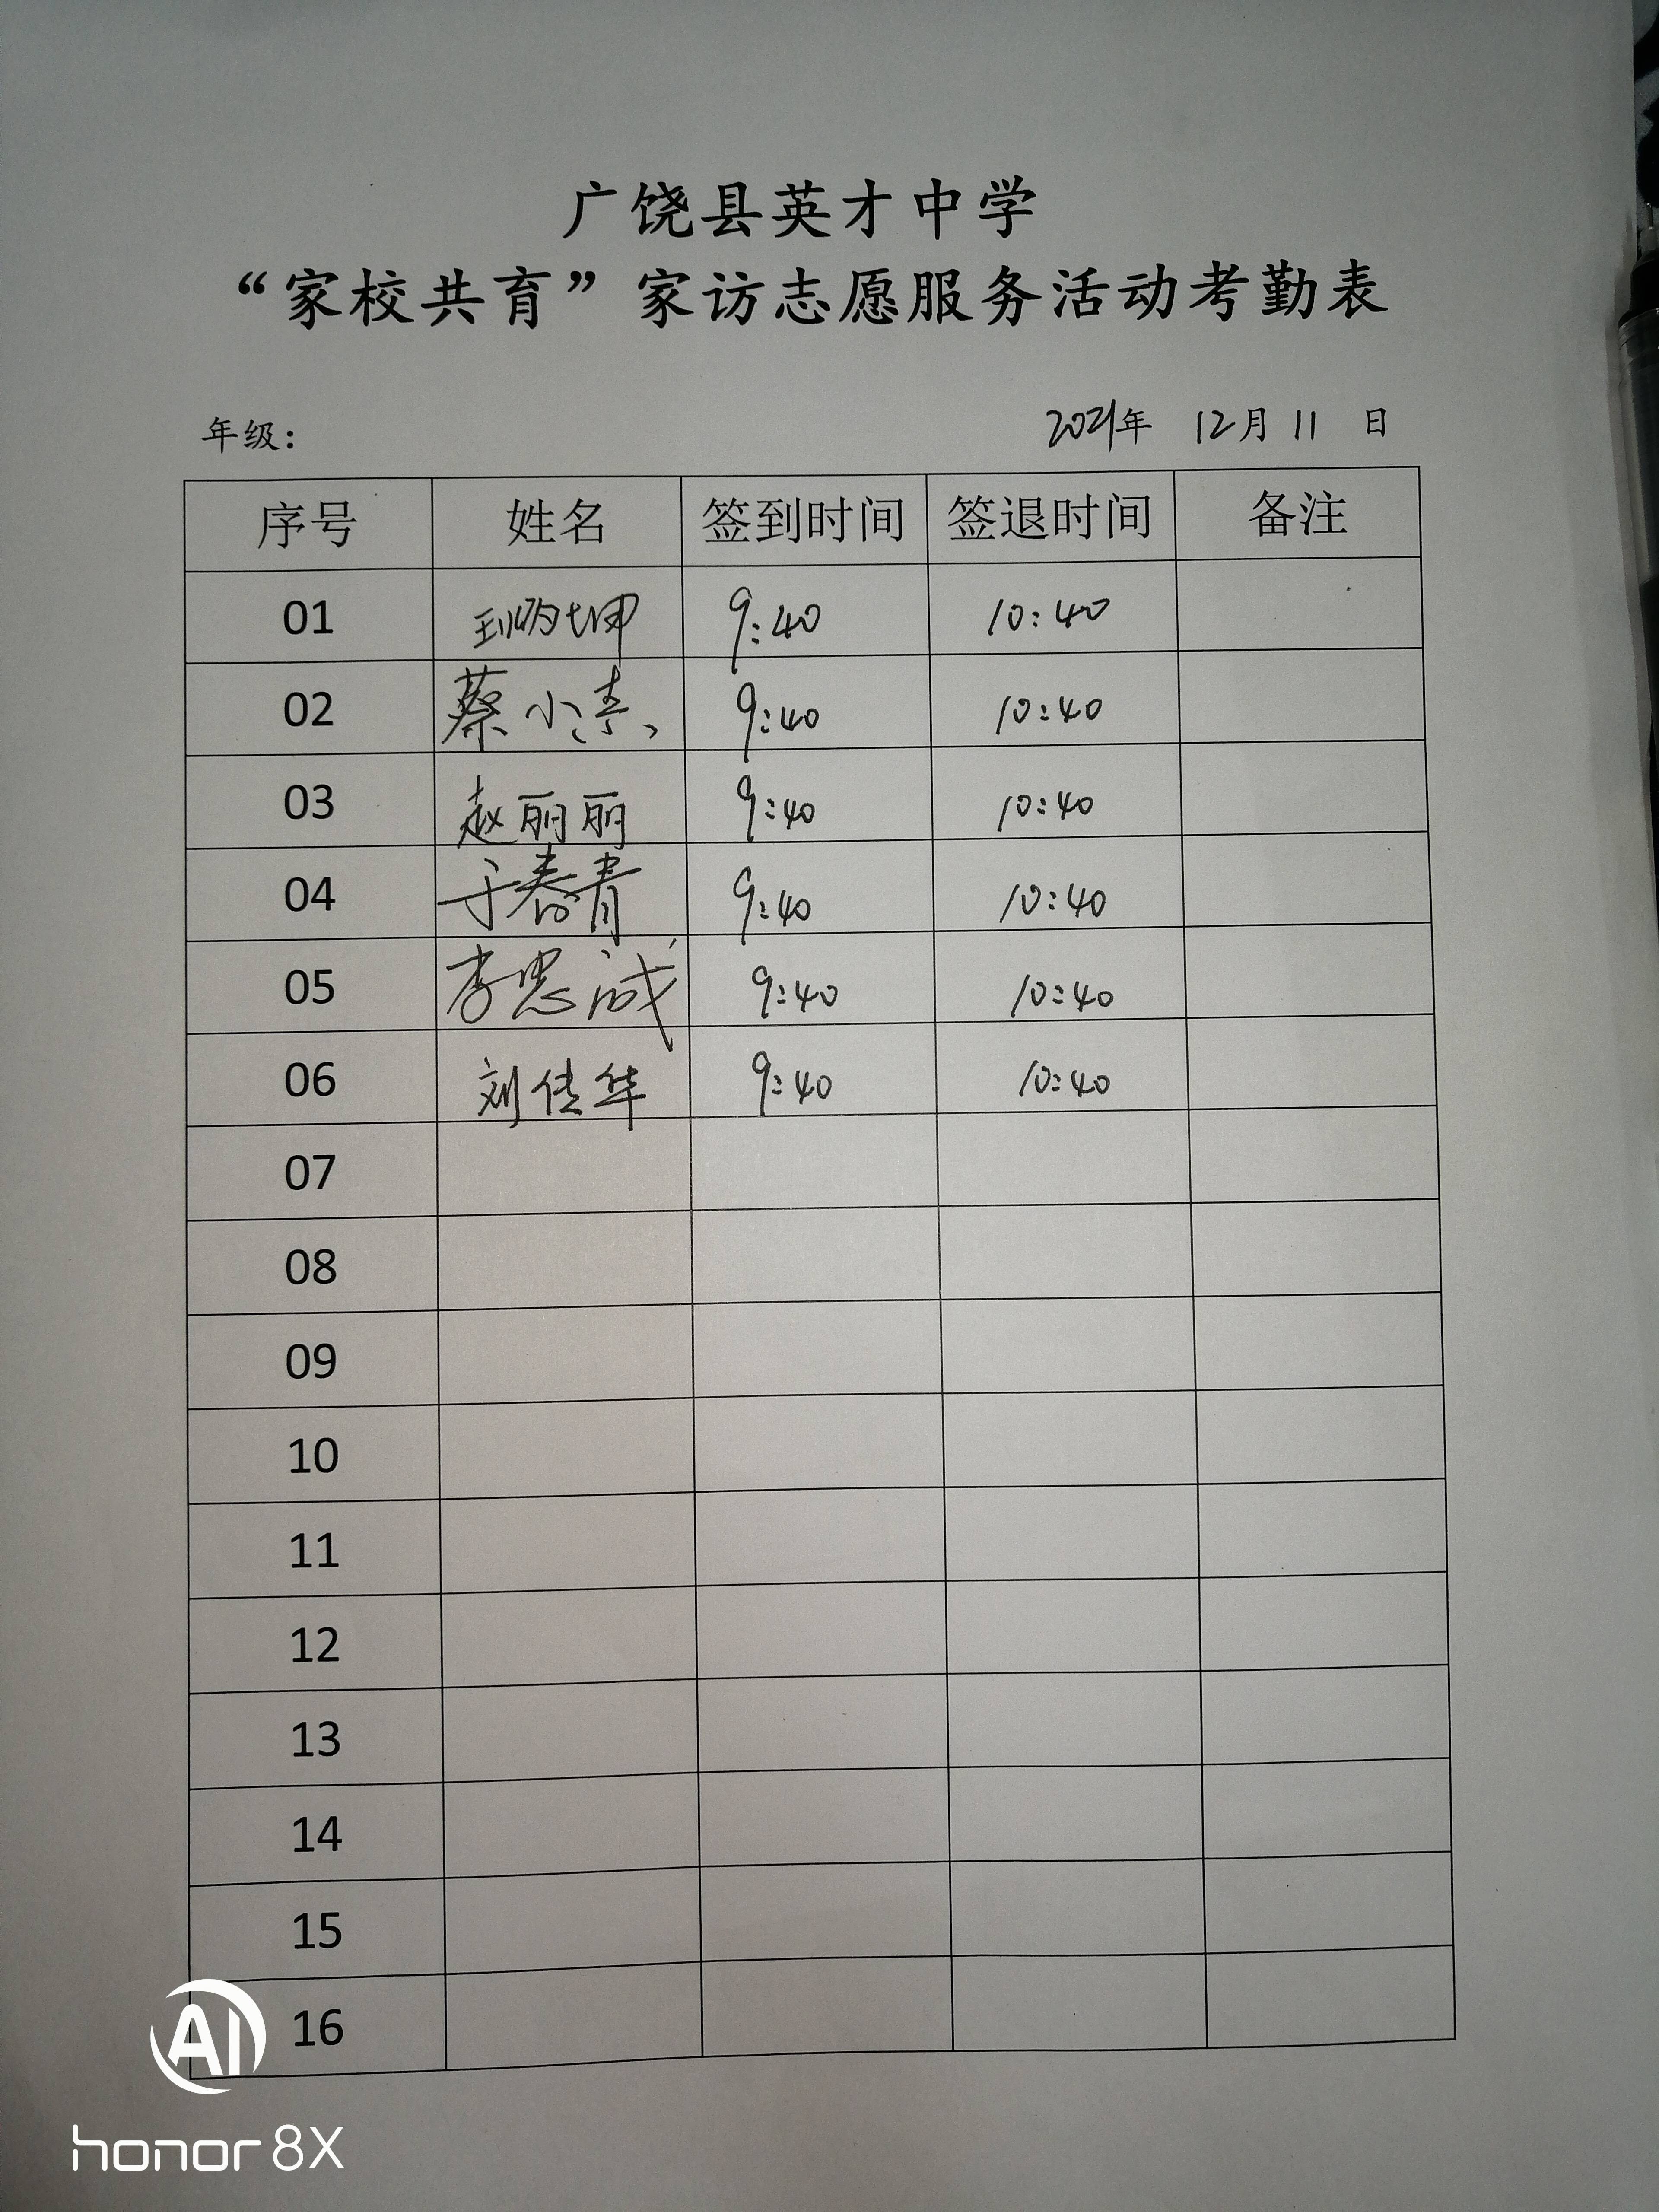 广饶县英才中学
“家校共育”家访志愿服务活动考勤表
年级： 2021年 12月 11 日
序号 姓名 签到时间 签退时间 备注
01 9:40 10:40
02 蔡小青 9:40 10:40
03 赵丽丽 9:40 10:40
04 于春青 9:40 10:40
05 李忠诚 9:40 10:40
06 刘佳华 9:40 10:40
07
08
09
10
11
12
13
14
15
16
AI
honor 8X